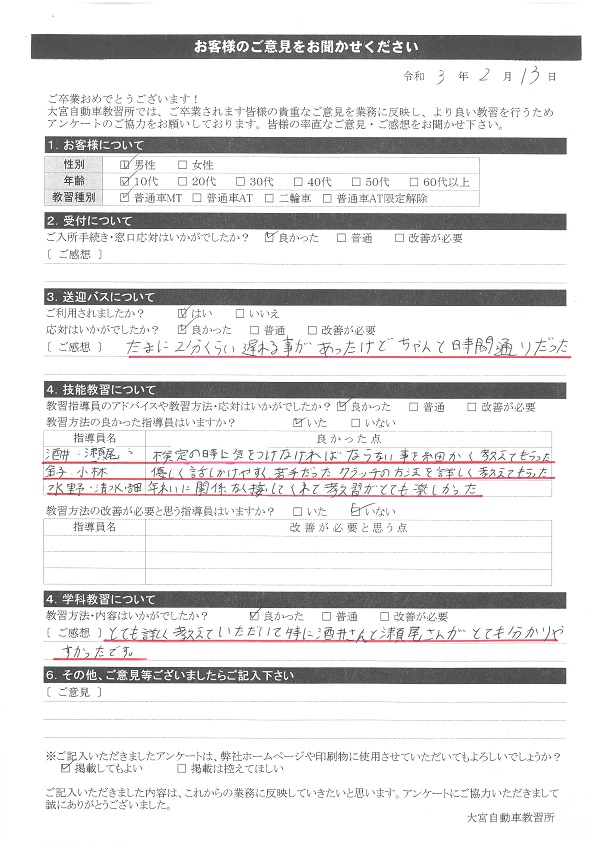 お客様のご意見をお聞かせください
令和 3 年 2 月 13 日
ご卒業おめでとうございます！
大宮自動車教習所では、ご卒業されます皆様の貴重なご意見を業務に反映し、より良い教習を行うため
アンケートのご協力をお願いしております。皆様の率直なご意見・ご感想をお聞かせ下さい。
1. お客様について
性別 ☑ 男性 □ 女性
年齢 ☑ 10代 □ 20代 □ 30代 □ 40代 □ 50代 □ 60代以上
教習種別 ☑ 普通車MT □ 普通車AT □ 二輪車 □ 普通車AT限定解除
2. 受付について
ご入所手続き・窓口応対はいかがでしたか？ ☑ 良かった □ 普通 □ 改善が必要
〔 ご感想 〕
3. 送迎バスについて
ご利用されましたか？ ☑ はい □ いいえ
応対はいかがでしたか？ ☑ 良かった □ 普通 □ 改善が必要
〔 ご感想 〕 たまに2分くらい遅れる事があったけどちゃんと時間通りだった
4. 技能教習について
教習指導員のアドバイスや教習方法・応対はいかがでしたか？ ☑ 良かった □ 普通 □ 改善が必要
教習方法の良かった指導員はいますか？ ☑ いた □ いない
指導員名 良かった点
酒井・瀬尾 検定の時に気をつけなければならない事を細かく教えてもらった
金子・小林 優しく話しかけやすく、若手だった クラッチの方法を詳しく教えてもらった
水野・清水・畑 年れいに関係なく接してくれて教習がとても楽しかった
教習方法の改善が必要と思う指導員はいますか？ □ いた ☑ いない
指導員名 改善が必要と思う点
4. 学科教習について
教習方法・内容はいかがでしたか？ ☑ 良かった □ 普通 □ 改善が必要
〔 ご感想 〕 とても詳しく教えていただいて特に酒井さんと瀬尾さんがとても分かりや
すかったです。
6. その他、ご意見等ございましたらご記入下さい
〔 ご意見 〕
※ご記入いただきましたアンケートは、弊社ホームページや印刷物に使用させていただいてもよろしいでしょうか？
☑ 掲載してもよい □ 掲載は控えてほしい
ご記入いただきました内容は、これからの業務に反映していきたいと思います。アンケートにご協力いただきまして
誠にありがとうございました。
大宮自動車教習所